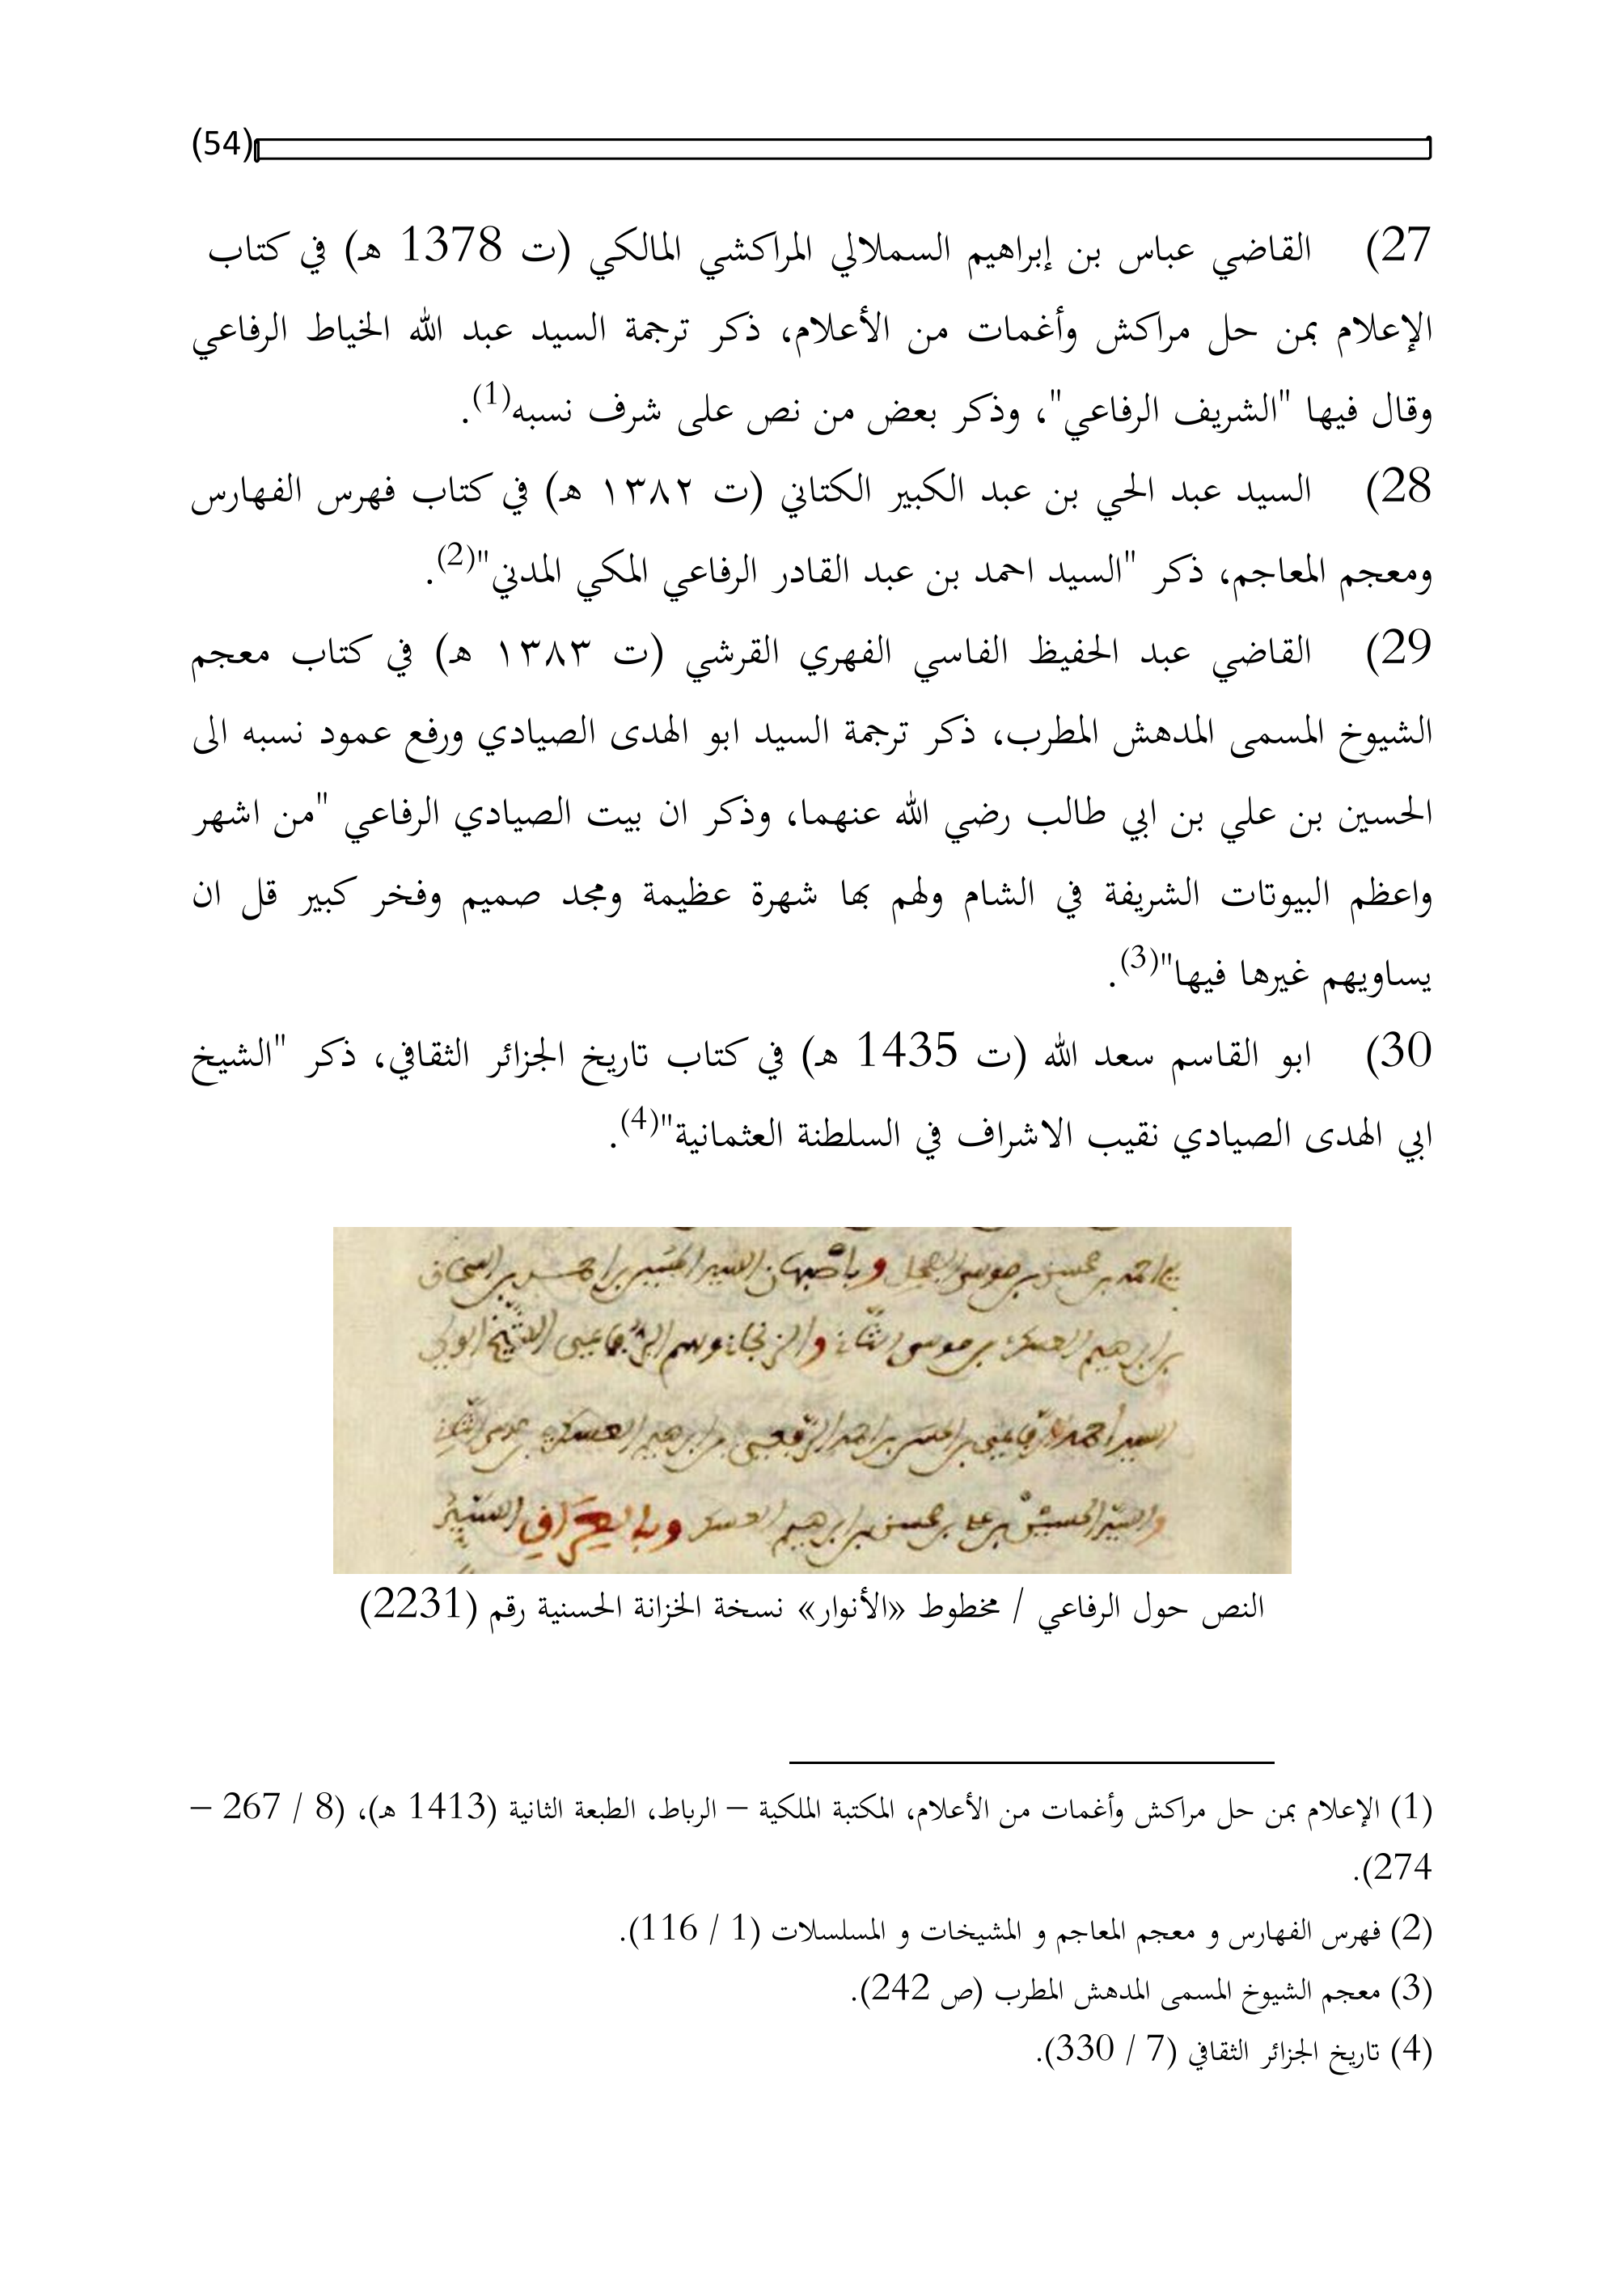 (54)
27) القاضي عباس بن إبراهيم السملالي المراكشي المالكي (ت 1378 هـ) في كتاب
الإعلام بمن حل مراكش وأغمات من الأعلام، ذكر ترجمة السيد عبد الله الخياط الرفاعي
وقال فيها "الشريف الرفاعي"، وذكر بعض من نص على شرف نسبه(1).
28) السيد عبد الحي بن عبد الكبير الكتاني (ت ١٣٨٢ هـ) في كتاب فهرس الفهارس
ومعجم المعاجم، ذكر "السيد احمد بن عبد القادر الرفاعي المكي المدني"(2).
29) القاضي عبد الحفيظ الفاسي الفهري القرشي (ت ١٣٨٣ هـ) في كتاب معجم
الشيوخ المسمى المدهش المطرب، ذكر ترجمة السيد ابو الهدى الصيادي ورفع عمود نسبه الى
الحسين بن علي بن ابي طالب رضي الله عنهما، وذكر ان بيت الصيادي الرفاعي "من اشهر
واعظم البيوتات الشريفة في الشام ولهم بها شهرة عظيمة ومجد صميم وفخر كبير قل ان
يساويهم غيرها فيها"(3).
30) ابو القاسم سعد الله (ت 1435 هـ) في كتاب تاريخ الجزائر الثقافي، ذكر "الشيخ
ابي الهدى الصيادي نقيب الاشراف في السلطنة العثمانية"(4).
احمد بن محسن بن موسى وباصبهان السيد بن
بن ابرهيم العسكري بن موسى الثاني الشيخ الولي
السيد أحمد الرفاعي بن بن احمد بن ابرهيم العسكري بن موسى الثاني
والسيد الحسين بن علي بن محسن بن ابرهيم العسكري وبالعراق السيد
النص حول الرفاعي / مخطوط «الأنوار» نسخة الخزانة الحسنية رقم (2231)
(1) الإعلام بمن حل مراكش وأغمات من الأعلام، المكتبة الملكية – الرباط، الطبعة الثانية (1413 هـ)، (8 / 267 –
274).
(2) فهرس الفهارس و معجم المعاجم و المشيخات و المسلسلات (1 / 116).
(3) معجم الشيوخ المسمى المدهش المطرب (ص 242).
(4) تاريخ الجزائر الثقافي (7 / 330).